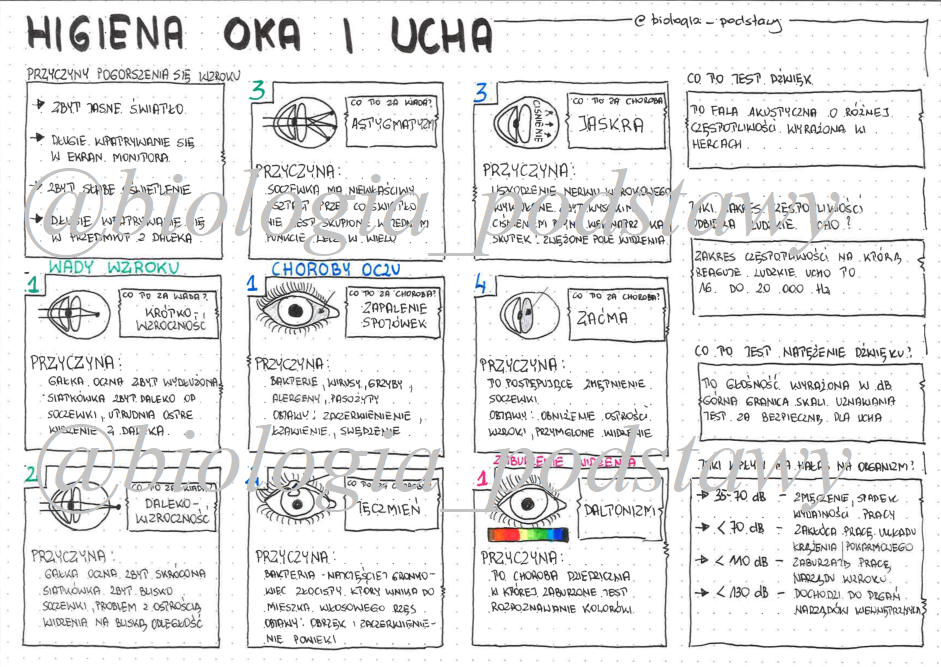 HIGIENA OKA I UCHA
@biologia_podstawy
PRZYCZYNY POGORSZENIA SIĘ WZROKU
ZBYT JASNE ŚWIATŁO
DŁUGIE WPATRYWANIE SIĘ
W EKRAN MONITORA
ZBYT SŁABE OŚWIETLENIE
DŁUGIE WPATRYWANIE SIĘ
W PRZEDMIOT Z DALEKA
WADY WZROKU
1
CO TO ZA WADA?
KRÓTKO-
WZROCZNOŚĆ
PRZYCZYNA:
GAŁKA OCZNA ZBYT WYDŁUŻONA
SIATKÓWKA ZBYT DALEKO OD
SOCZEWKI, UTRUDNIA OSTRE
WIDZENIE Z DALEKA.
2
CO TO ZA WADA?
DALEKO-
WZROCZNOŚĆ
PRZYCZYNA:
GAŁKA OCZNA ZBYT SKRÓCONA
SIATKÓWKA ZBYT BLISKO
SOCZEWKI, PROBLEM Z OSTROŚCIĄ
WIDZENIA NA BLISKĄ ODLEGŁOŚĆ
3
CO TO ZA WADA?
ASTYGMATYZM
PRZYCZYNA:
SOCZEWKA MA NIEWŁAŚCIWY
KSZTAŁT PRZEZ CO ŚWIATŁO
NIE JEST SKUPIONE W JEDNYM
PUNKCIE LECZ W WIELU
CHOROBY OCZU
1
CO TO ZA CHOROBA?
ZAPALENIE
SPOJÓWEK
PRZYCZYNA:
BAKTERIE, WIRUSY, GRZYBY,
ALERGENY, PASOŻYTY
OBJAWY: ZACZERWIENIENIE,
ŁZAWIENIE, SWĘDZENIE
2
CO TO ZA CHOROBA?
JĘCZMIEŃ
PRZYCZYNA:
BAKTERIA - NAJCZĘŚCIEJ GRONKO-
WIEC ZŁOCISTY, KTÓRY WNIKA DO
MIESZKA WŁOSOWEGO RZĘS
OBJAWY: OBRZĘK I ZACZERWIENIE-
NIE POWIEKI
3
CO TO ZA CHOROBA
JASKRA
CIŚNIENIE
PRZYCZYNA:
USZKODZENIE NERWU WZROKOWEGO
WYWOŁANE ZBYT WYSOKIM
CIŚNIENIEM PŁYNU WEWNĄTRZ OKA
SKUTEK: ZWĘŻONE POLE WIDZENIA
4
CO TO ZA CHOROBA?
ZAĆMA
PRZYCZYNA:
TO POSTĘPUJĄCE ZMĘTNIENIE
SOCZEWKI.
OBJAWY: OBNIŻENIE OSTROŚCI
WZROKU, PRZYMGLONE WIDZENIE
ZABURZENIE WIDZENIA
1
DALTONIZM
PRZYCZYNA:
TO CHOROBA DZIEDZICZNA
W KTÓREJ ZABURZONE JEST
ROZPOZNAWANIE KOLORÓW.
CO TO JEST DŹWIĘK
TO FALA AKUSTYCZNA O RÓŻNEJ
CZĘSTOTLIWOŚCI WYRAŻONA W
HERCACH
JAKI ZAKRES CZĘSTOTLIWOŚCI
ODBIERA LUDZKIE UCHO?
ZAKRES CZĘSTOTLIWOŚCI NA KTÓRĄ
REAGUJE LUDZKIE UCHO TO
16 DO 20 000 Hz
CO TO JEST NATĘŻENIE DŹWIĘKU?
TO GŁOŚNOŚĆ WYRAŻONA W dB
GÓRNA GRANICA SKALI UZNAWANA
JEST ZA BEZPIECZNĄ DLA UCHA
JAKI WPŁYW MA HAŁAS NA ORGANIZM?
35-70 dB - ZMĘCZENIE, SPADEK
WYDAJNOŚCI PRACY
< 70 dB - ZAKŁÓCA PRACĘ UKŁADU
KRĄŻENIA I POKARMOWEGO
< 110 dB - ZABURZAJĄ PRACĘ
NARZĄDU WZROKU
< 130 dB - DOCHODZI DO DRGAŃ
NARZĄDÓW WEWNĘTRZNYCH
@biologia_podstawy
@biologia_podstawy